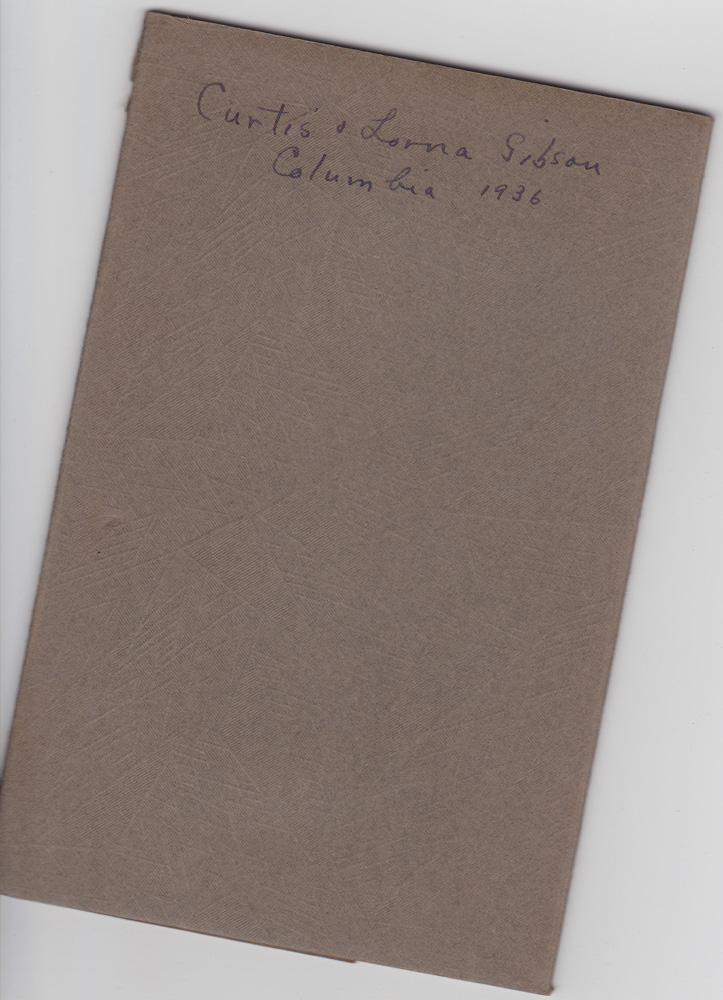 Curtis & Lorna Gibson
Columbia 1936